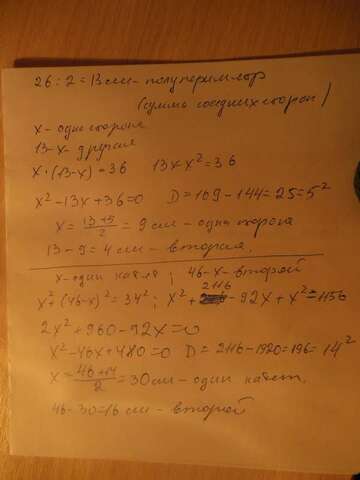 26:2=13 см - полупериметр
(сумма соседних сторон)
x - одна сторона
13-x - другая
x·(13-x)=36 13x-x²=36
x²-13x+36=0 D=169-144=25=5²
x=(13+5)/2=9 см - одна сторона
13-9=4 см - вторая.
x-один катет; 46-x-второй
x²+(46-x)²=34²; x²+2116-92x+x²=1156
2x²+960-92x=0
x²-46x+480=0 D=2116-1920=196=14²
x=(46+14)/2=30 см - один катет.
46-30=16 см - второй